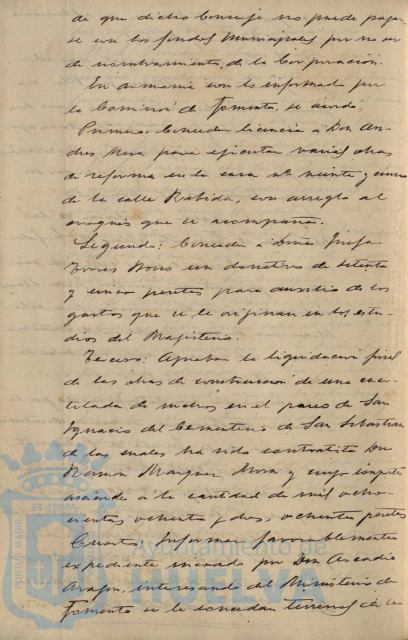 de que dicho Conserje no puede pagar
se con los fondos Municipales por no ser
de nombramiento de la Corporación.
En armonia con lo informado por
la Comisión de Fomento, se acordó:
Primero: Conceder licencia a Don An
drés Mora para ejecutar varias obras
de reforma en la casa nº veinte y cinco
de la calle Rabida, con arreglo al
croquis que se acompaña.
Segundo: Conceder a Doña Josefa
Torres un donativo de setenta
y cinco pesetas para auxilio de los
gastos que se le originan en los estu-
dios del Magisterio.
Tercero: Aprobar la liquidación final
de las obras de construcción de una
de nichos en el paseo de San
Ignacio del Cementerio de San Sebastian
de las cuales ha sido contratista Don
Ramon Marquez Mora y cuyo importe
asciende a la cantidad de mil ocho-
cientas ochenta y dos, ochenta pesetas
Cuarto: Informar favorablemente
expediente incoado por Don Arcadio
Aragon, interesando del Ministerio de
Fomento se le concedan terrenos de la
PORTUS MARIS
ET TERRAE
Ayuntamiento de
HUELVA